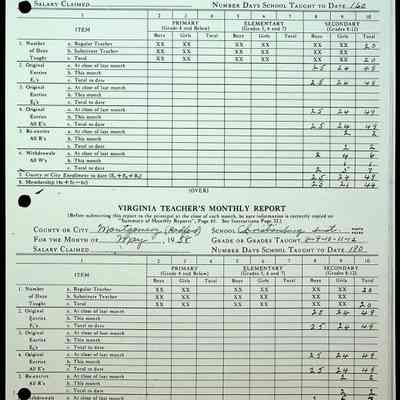 SALARY CLAIMED NUMBER DAYS SCHOOL TAUGHT TO DATE 160
1 2 3 4 5 6 7 8 9 10
ITEM PRIMARY (Grade 4 and Below) ELEMENTARY (Grades 5, 6 and 7) SECONDARY (Grades 8-12)
Boys Girls Total Boys Girls Total Boys Girls Total
1. Number a. Regular Teacher XX XX XX XX XX XX 20
of Days b. Substitute Teacher XX XX XX XX XX XX
Taught c. Total XX XX XX XX XX XX 20
2. Original a. At close of last month 25 24 49
Entries b. This month
E₁'s c. Total to date 25 24 49
3. Original a. At close of last month
Entries b. This month
E₂'s c. Total to date
4. Original a. At close of last month 25 24 49
Entries b. This month
All E's c. Total to date 25 24 49
5. Re-entries a. At close of last month
All R's b. This month
c. Total to date
6. Withdrawals a. At close of last month
All W's b. This month
c. Total to date
7. County or City Enrollment to date 25 24 49
8. Membership
(OVER)
VIRGINIA TEACHER'S MONTHLY REPORT
(Before submitting this report to the principal at the close of each month, be sure information is correctly copied to
"Summary of Monthly Reports", Page 40. See Instructions Page 32.)
COUNTY OR CITY Montgomery (Radford) SCHOOL Christiansburg Inst.
FOR THE MONTH OF May 1958 GRADE OR GRADES TAUGHT 8-9-10-11-12
SALARY CLAIMED NUMBER DAYS SCHOOL TAUGHT TO DATE 180
1 2 3 4 5 6 7 8 9 10
ITEM PRIMARY (Grade 4 and Below) ELEMENTARY (Grades 5, 6 and 7) SECONDARY (Grades 8-12)
Boys Girls Total Boys Girls Total Boys Girls Total
1. Number a. Regular Teacher XX XX XX XX XX XX 20
of Days b. Substitute Teacher XX XX XX XX XX XX
Taught c. Total XX XX XX XX XX XX 20
2. Original a. At close of last month 25 24 49
Entries b. This month
E₁'s c. Total to date 25 24 49
3. Original a. At close of last month
Entries b. This month
E₂'s c. Total to date
4. Original a. At close of last month 25 24 49
Entries b. This month
All E's c. Total to date 25 24 49
5. Re-entries a. At close of last month 2 2
All R's b. This month
c. Total to date 2 2
6. Withdrawals a. At close of last month